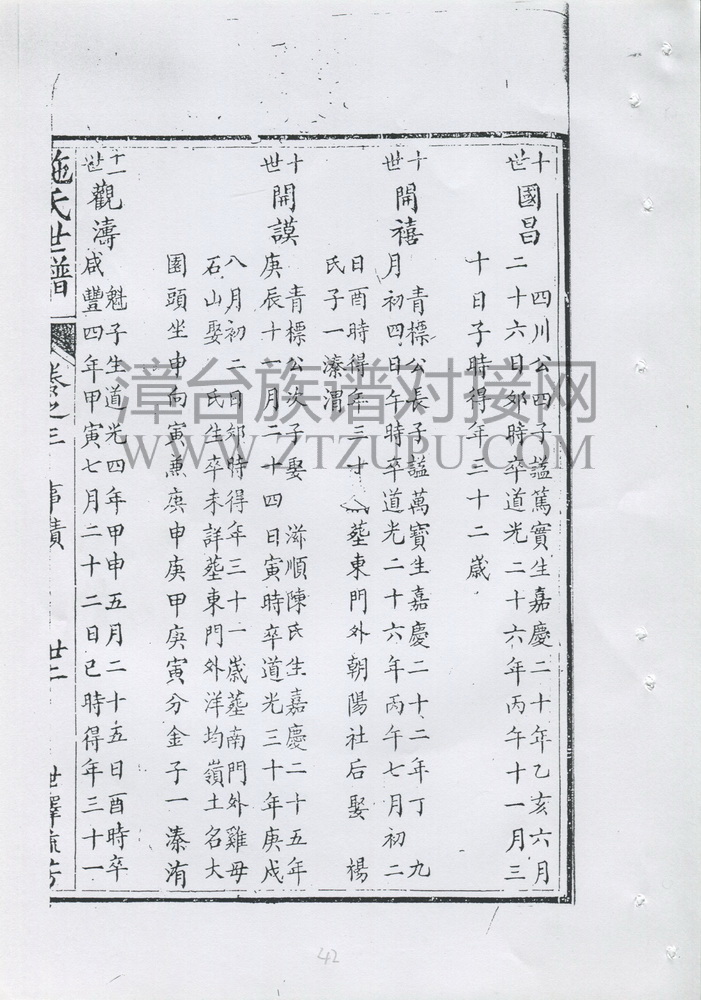 十世 國昌
四川公四子謚篤實生嘉慶二十年乙亥六月
二十六日卯時卒道光二十六年丙午十一月三
十日子時得年三十二歲
十世 開禧
青標公長子謚萬寶生嘉慶二十二年丁 九
月初四日午時卒道光二十六年丙午七月初二
日酉時得年三十 塟東門外朝陽社后娶 楊
氏子一溱渭
十世 開謨
青標公次子娶 滋順陳氏生嘉慶二十五年
庚辰十一月二十四日寅時卒道光三十年庚戌
八月初二日卯時得年三十一歲塟南門外雞母
石山娶 氏生卒未詳塟東門外洋均嶺土名大
園頭坐申向寅兼庚申庚甲庚寅分金子一溱洧
十一世 觀濤
魁子生道光四年甲申五月二十五日酉時卒
咸豐四年甲寅七月二十二日巳時得年三十一
施氏世譜 卷之三 事蹟 廿二 世澤流芳
漳台族谱对接网
WWW.ZTZUPU.COM
42